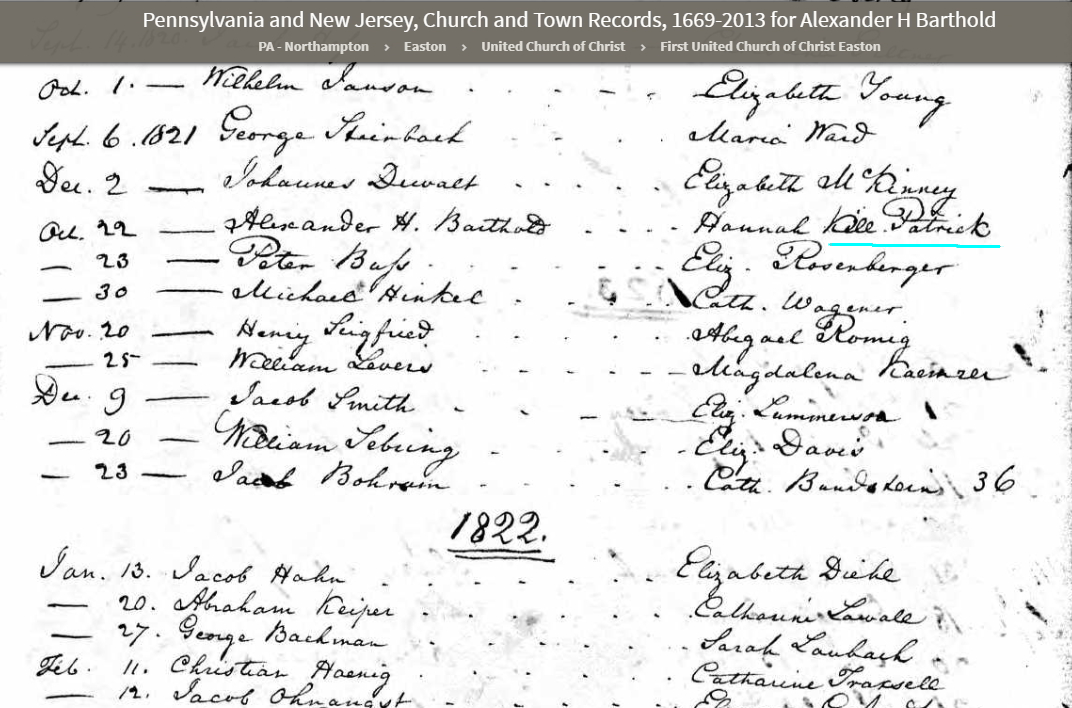 Pennsylvania and New Jersey, Church and Town Records, 1669-2013 for Alexander H Barthold
PA - Northampton › Easton › United Church of Christ › First United Church of Christ Easton
Oct. 1. — Wilhelm Janson . . - - . Elizabeth Young
Sept. 6. 1821 George Steinbach - - . Maria Ward
Dec. 2 — Johannes Dewalt . . . . . Elizabeth McKinney
Oct. 22 — Alexander H. Barthold . . . . Hannah Kill Patrick
— 23 — Peter Bass . . . . . Eliz. Rosenberger
— 30 — Michael Hinkel . . . Cath. Wagener
Nov. 20 — Henry Seigfried . . . . . Abigael Romig
— 25 — William Levers . . - - - - Magdalena
Dec. 9 — Jacob Smith . . - - Eliz.
— 20 — William Sebring . . . . Eliz. Davis
— 23 — Jacob . . . . . Cath. 36
1822.
Jan. 13. Jacob Hahn . . . . . . Elizabeth Diehl
— 20. Abraham Keiper . . . . . . Catharine Lawall
— 27. George Bachman . . . . . Sarah Laubach
Feb. 11. Christian Haenig . . . . . Catharine Traxsell
— 12. Jacob Ohnangst